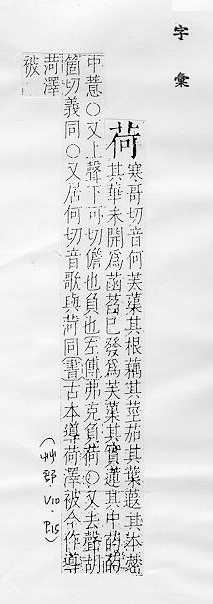 字彙
荷
寒哥切音何芙蕖其根藕其莖茄其葉蕸其本蔤
其華未開爲菡萏已發爲芙蕖其實蓮其中的的
中薏○又上聲下可切儋也負也左傳弗克負荷○又去聲胡
箇切義同○又居何切音歌與菏同書古本導荷澤被今作導
菏澤
被
(艸部 V10. P15)